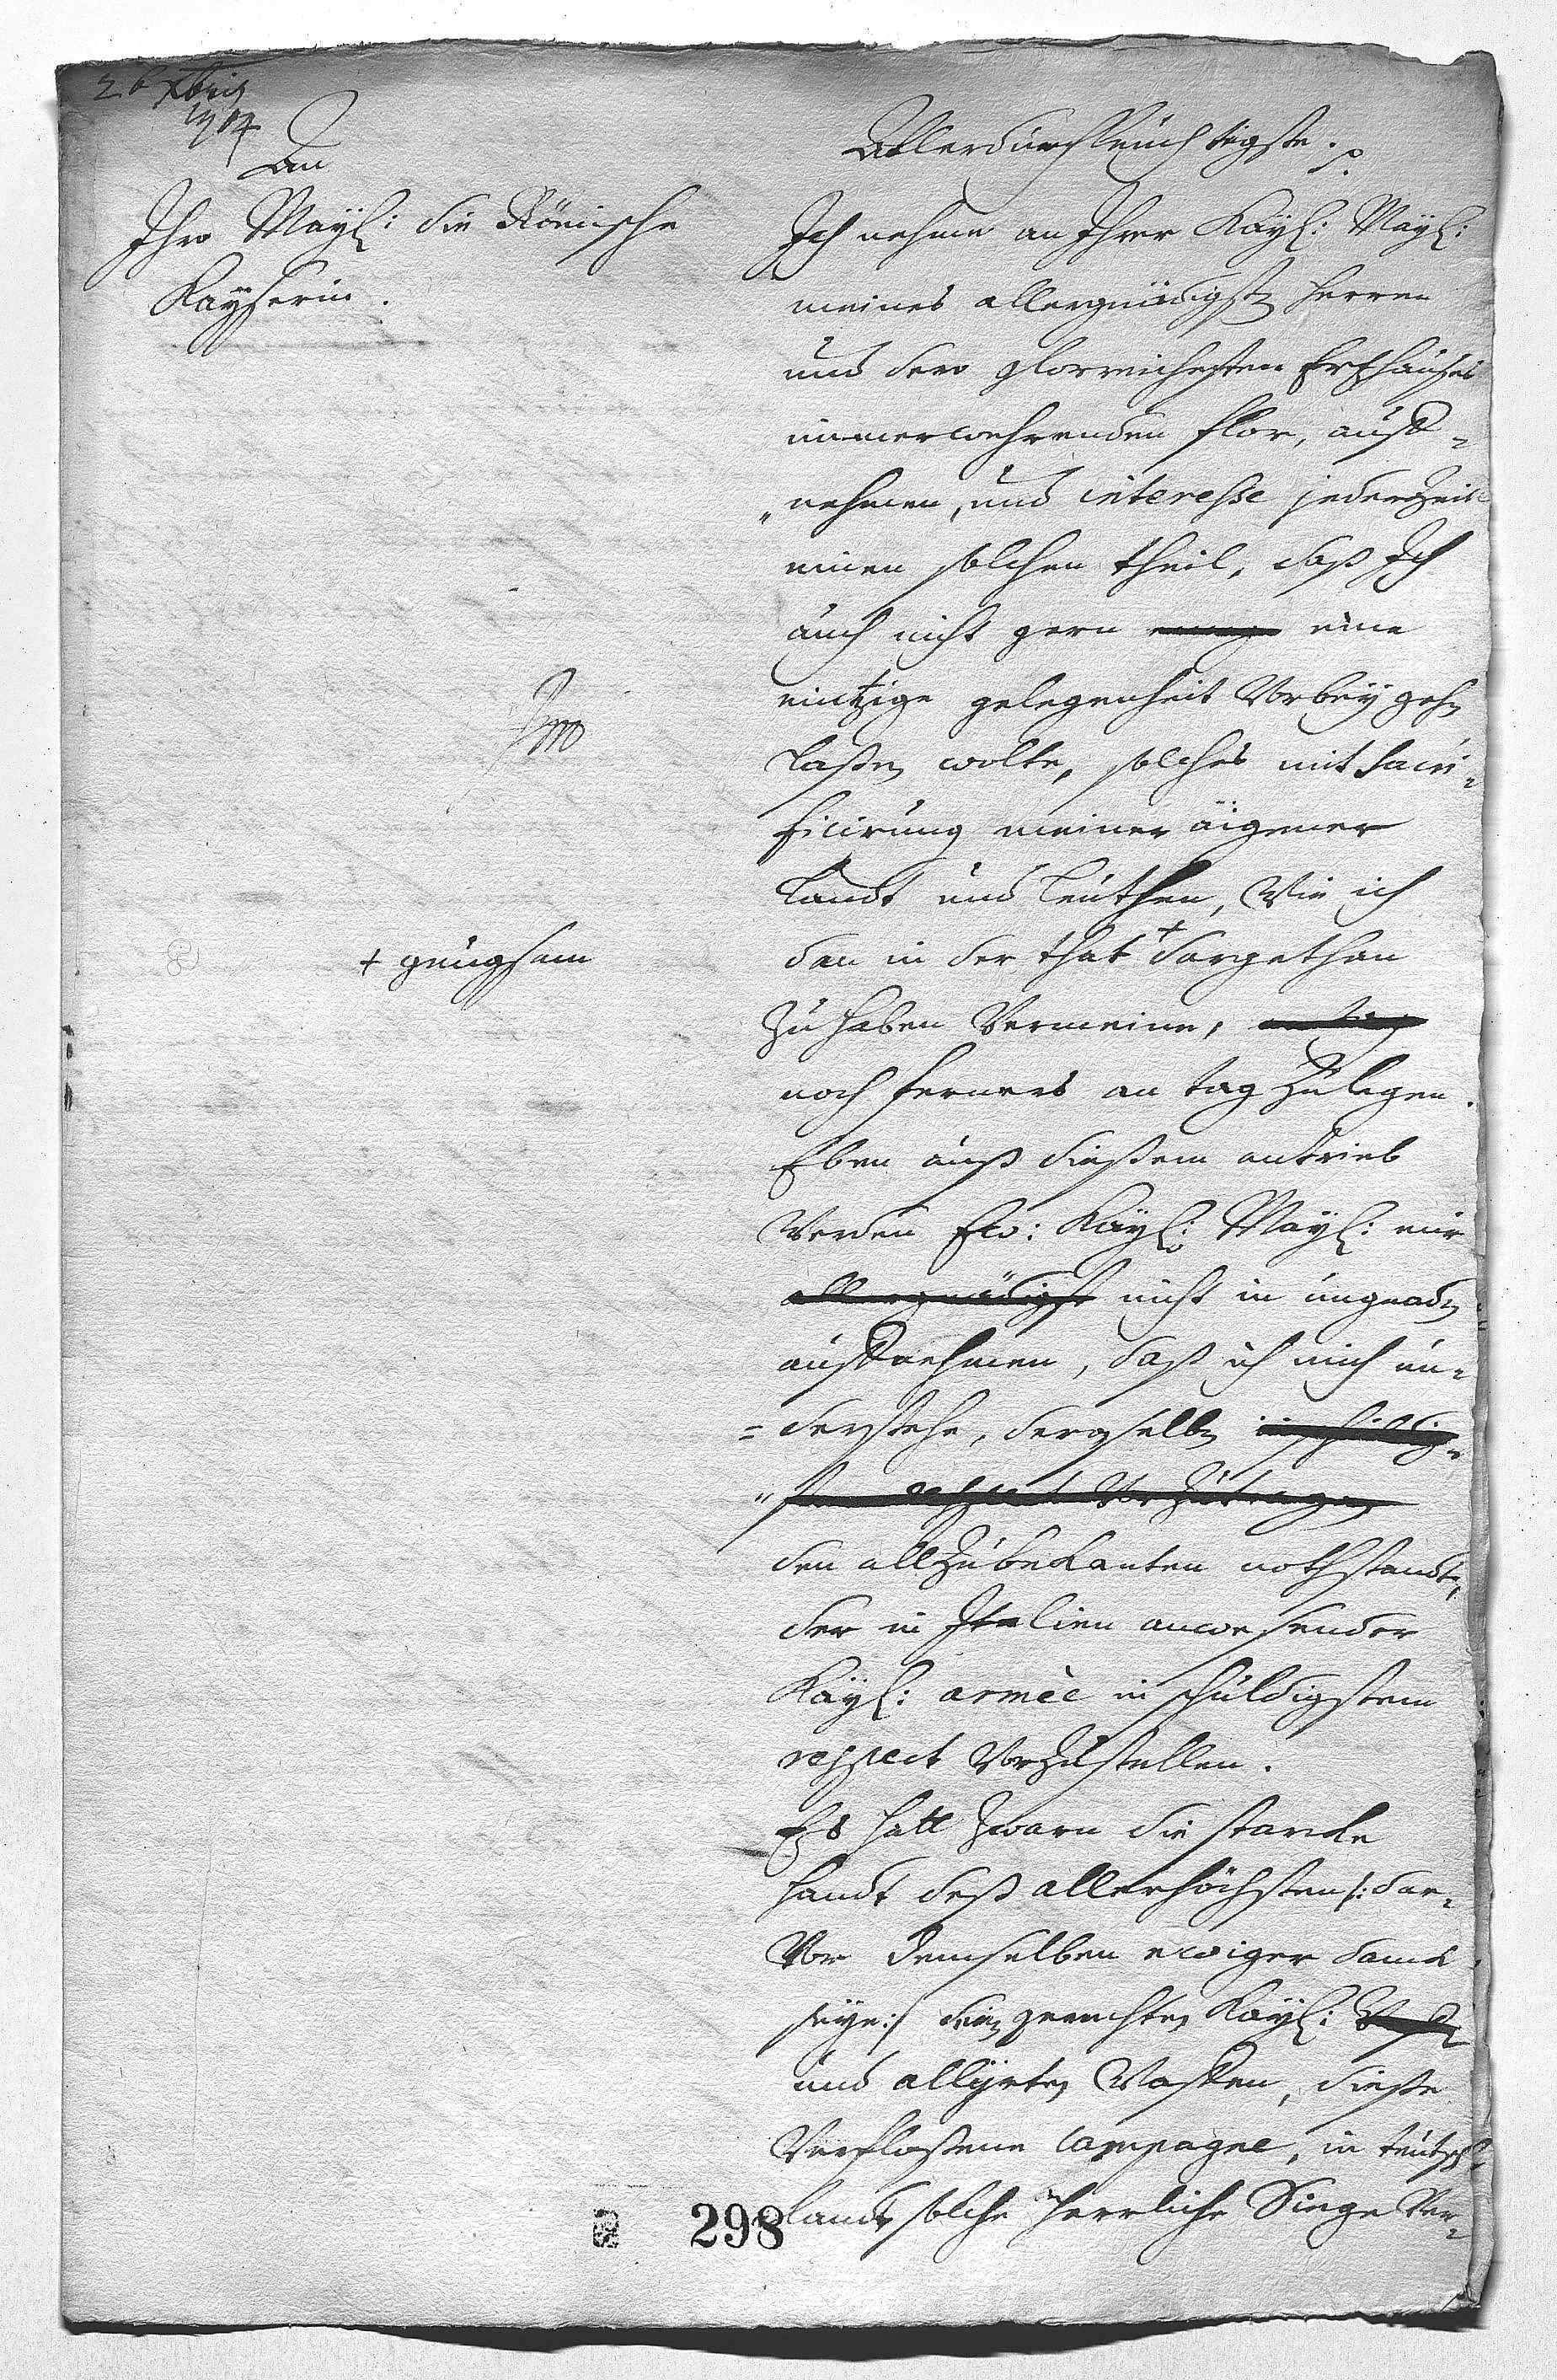 26 Xbris
1704
An
Ihro Mayl: die Römische
Kayserin.
+ gnugsam
Allerdurchleuchtigste. p.
Ich nehme an Ihrer Kayl: Mayl:
meines allergnädigst herren
und dero glorreichesten Ertzhauses
immerwehrenden flor, auff-
"nehmen, und interesse jederzeit
einen solchen theil, daß Ich
auch nicht gern eine
eintzige gelegenheit Vorbey gehn
laßen wolte, solches mit sacri-
ficirung meiner äigener
landt und leuthen, Wie ich
dan in der that + dargethan
zu haben Vermeine,
noch ferners an tag zulegen.
Eben auß dießem antrieb
Werden Ew: Kayl: Mayl: mir
allergnädigst nicht in ungnaden
auffnehmen, daß ich mich un-
=derstehe, derselben in schuldig-
"stem respect Vorzutragen
den allzubekanten nothstandt,
der in Italien anwesender
Kayl: armèe in schuldigstem
respect Vorzustellen.
Es hatt zwarn die starcke
handt deß allerhöchsten /: dar-
Vor demselben ewiger danck
seye:/ den gerechten Kayl:
und allyrten Waffen, dieße
Verfloßene Campagne, in teutsch-
landt solche herrliche Siege Ver-
298